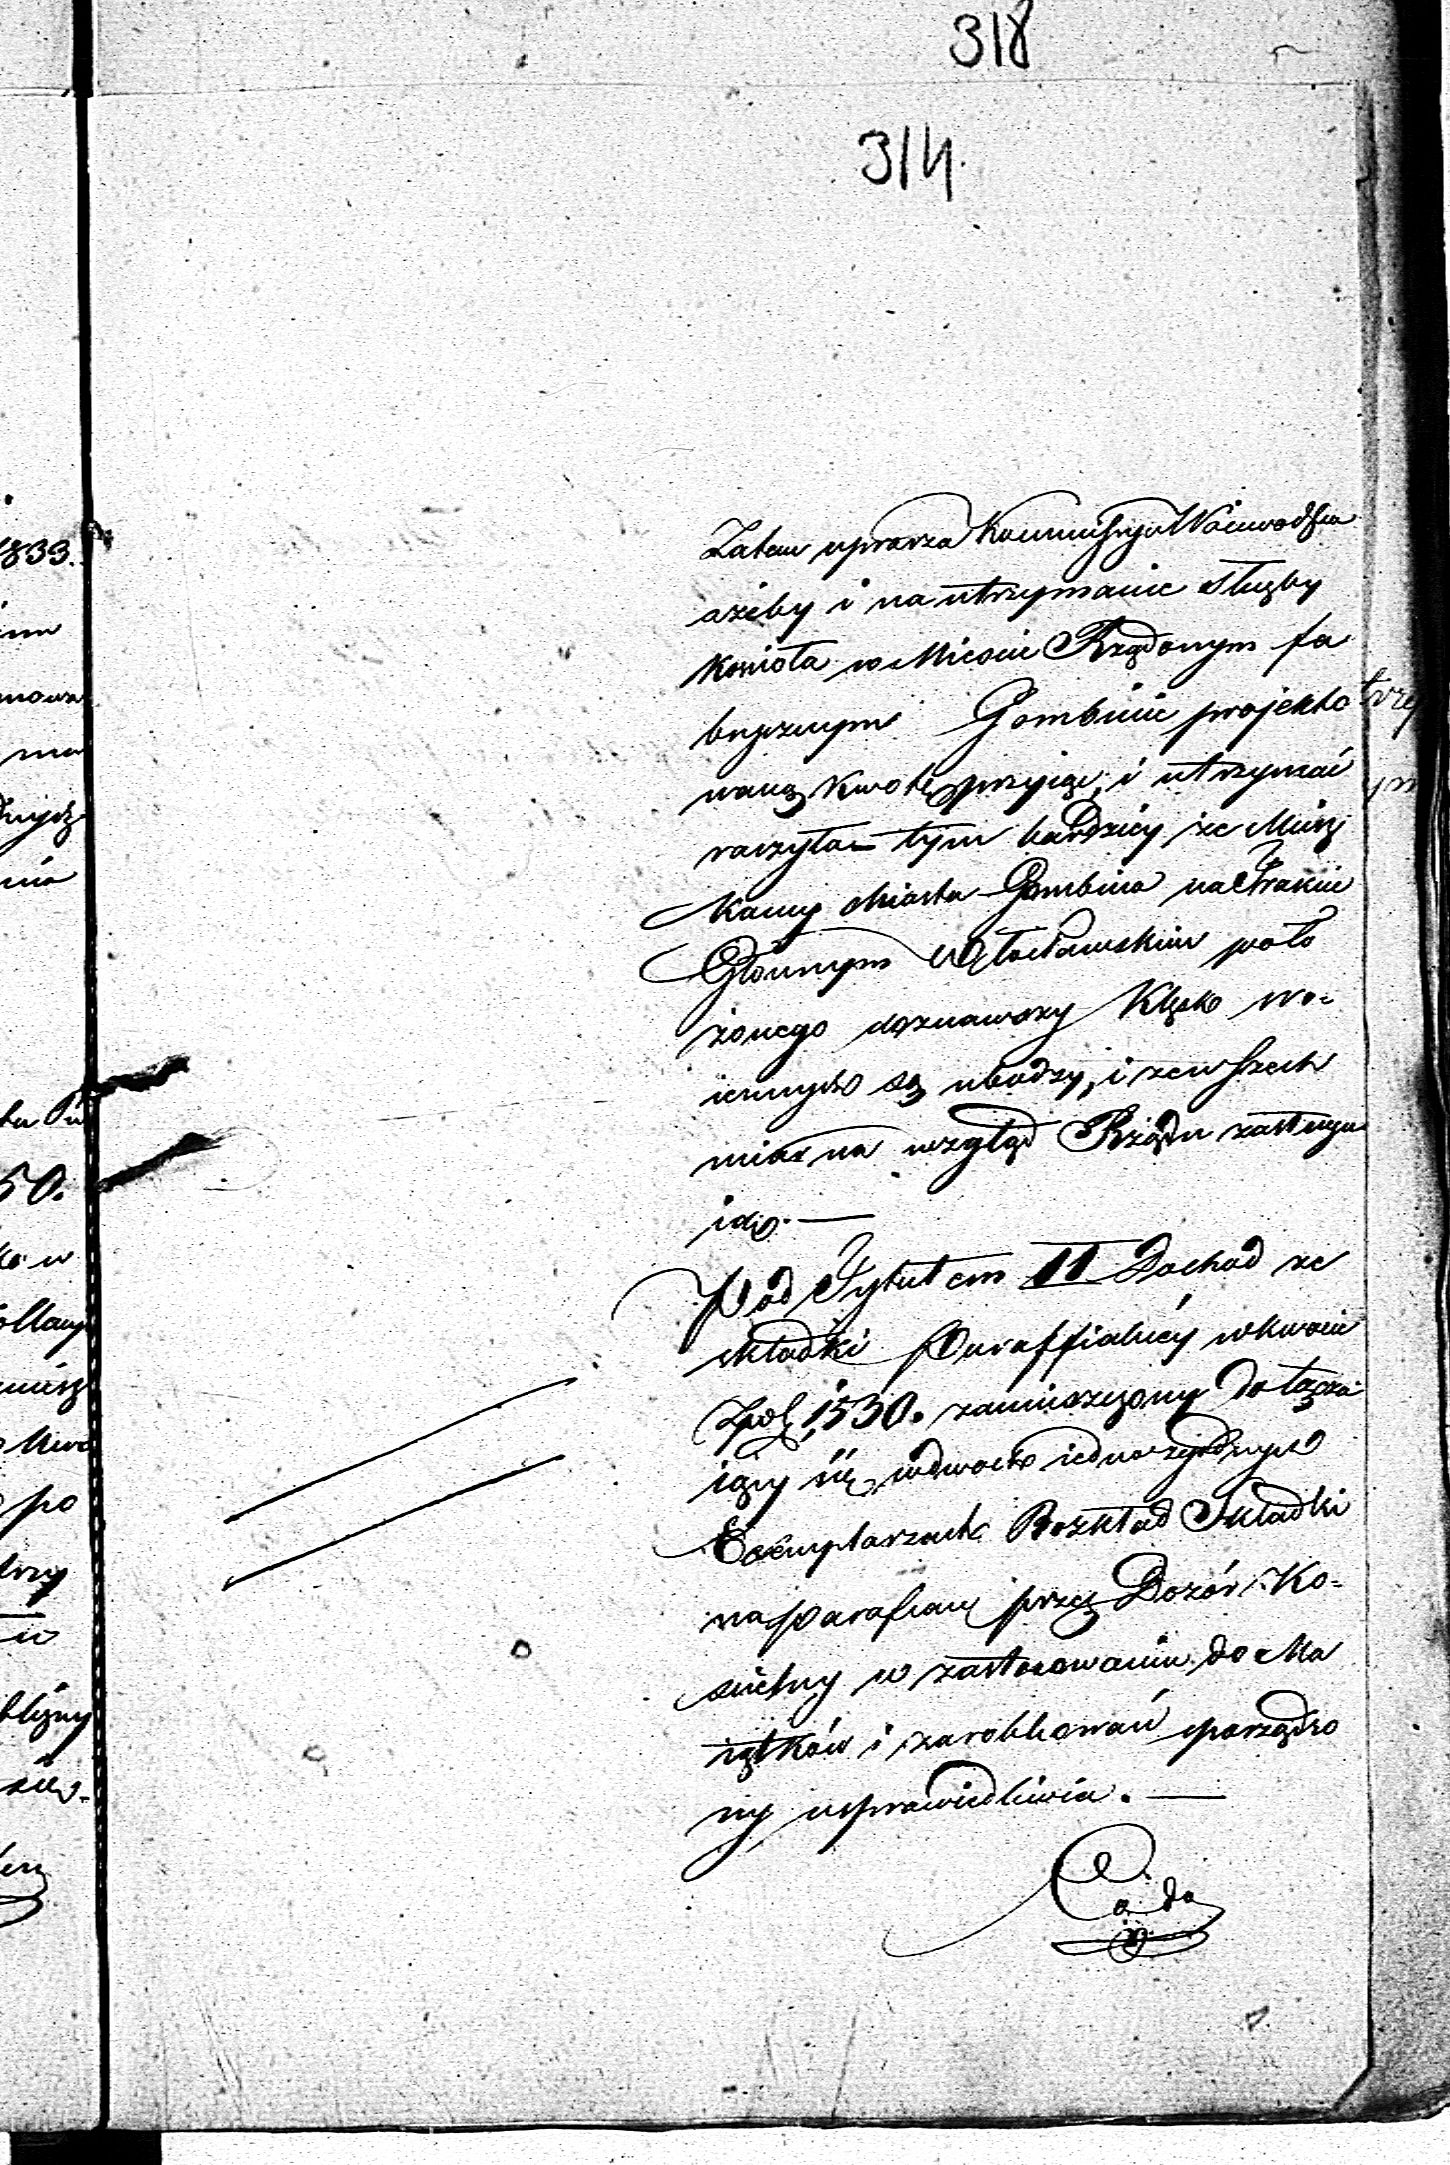 318
314.
Zatem uprasza Kommissyą Woiewodską
ażeby i na utrzymanie służby
kościoła w Mieście Rządowym fa
brycznym Gombinie projekto
waną kwotę przyiąć, i utrzymać
raczyła – tym bardziey że Miesz
kańcy Miasta Gombina na Trakcie
Głównym Włocławskim poło
żonego doznawszy Klęsk wo-
iennych są ubodzy, i ze wszech
miar na wzgląd Rządu zasługu
ią. —
Pod Tytułem II Dochod ze
składki Paraffialnéy w kwocie
Zpol. 1530. zamieszczony dołącza
iący się w dwoch iednozgodnych
Exemplarzach Rozkład Składki
na parafian przez Dozór Ko-
ścielny w zastosowaniu do Ma
iątków i zarobkowań sporządzo
ny usprawiedliwia. —
1833.
50.
po